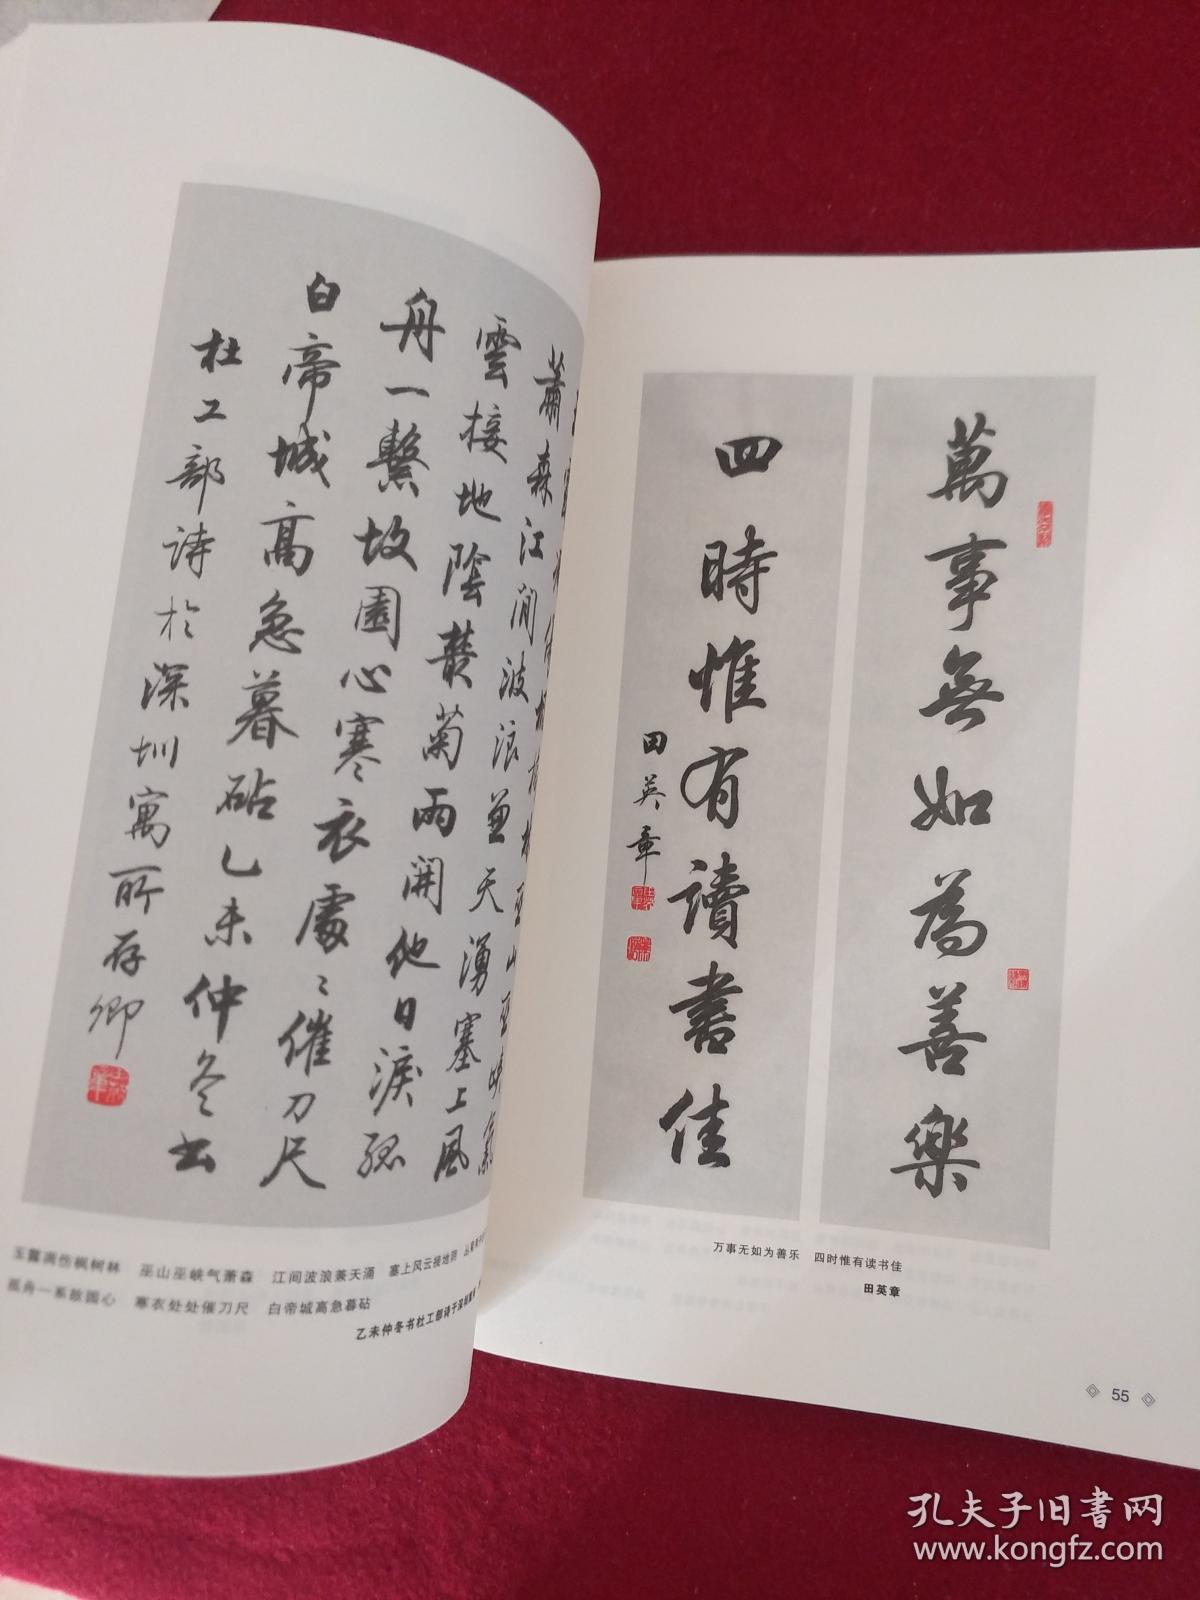 巫山巫峽氣
蕭森江间波浪兼天湧塞上風
雲接地陰叢菊兩開他日淚孤
舟一繫故園心寒衣處〻催刀尺
白帝城高急暮砧乙未仲冬书
杜工部诗於深圳寓所存卿
玉露凋伤枫树林 巫山巫峡气萧森 江间波浪兼天涌 塞上风云接地阴 丛菊
孤舟一系故园心 寒衣处处催刀尺 白帝城高急暮砧
乙未仲冬书杜工部诗于深圳寓
萬事無如為善樂
四時惟有讀書佳
田英章
万事无如为善乐 四时惟有读书佳
田英章
55
孔夫子旧书网
www.kongfz.com